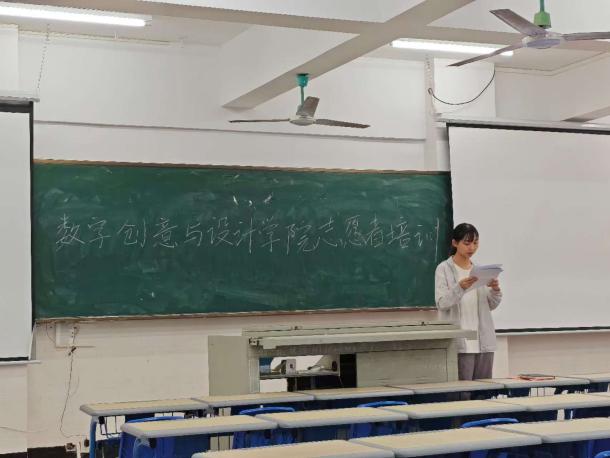 数字创意与设计学院志愿者培训